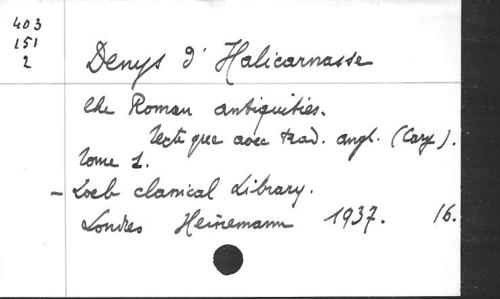 403
151
2
Denys d' Halicarnasse
the Roman antiquities.
Texte grec avec trad. angl. (Cary).
Tome 1.
- Loeb classical Library.
Londres Heinemann 1937. 16.